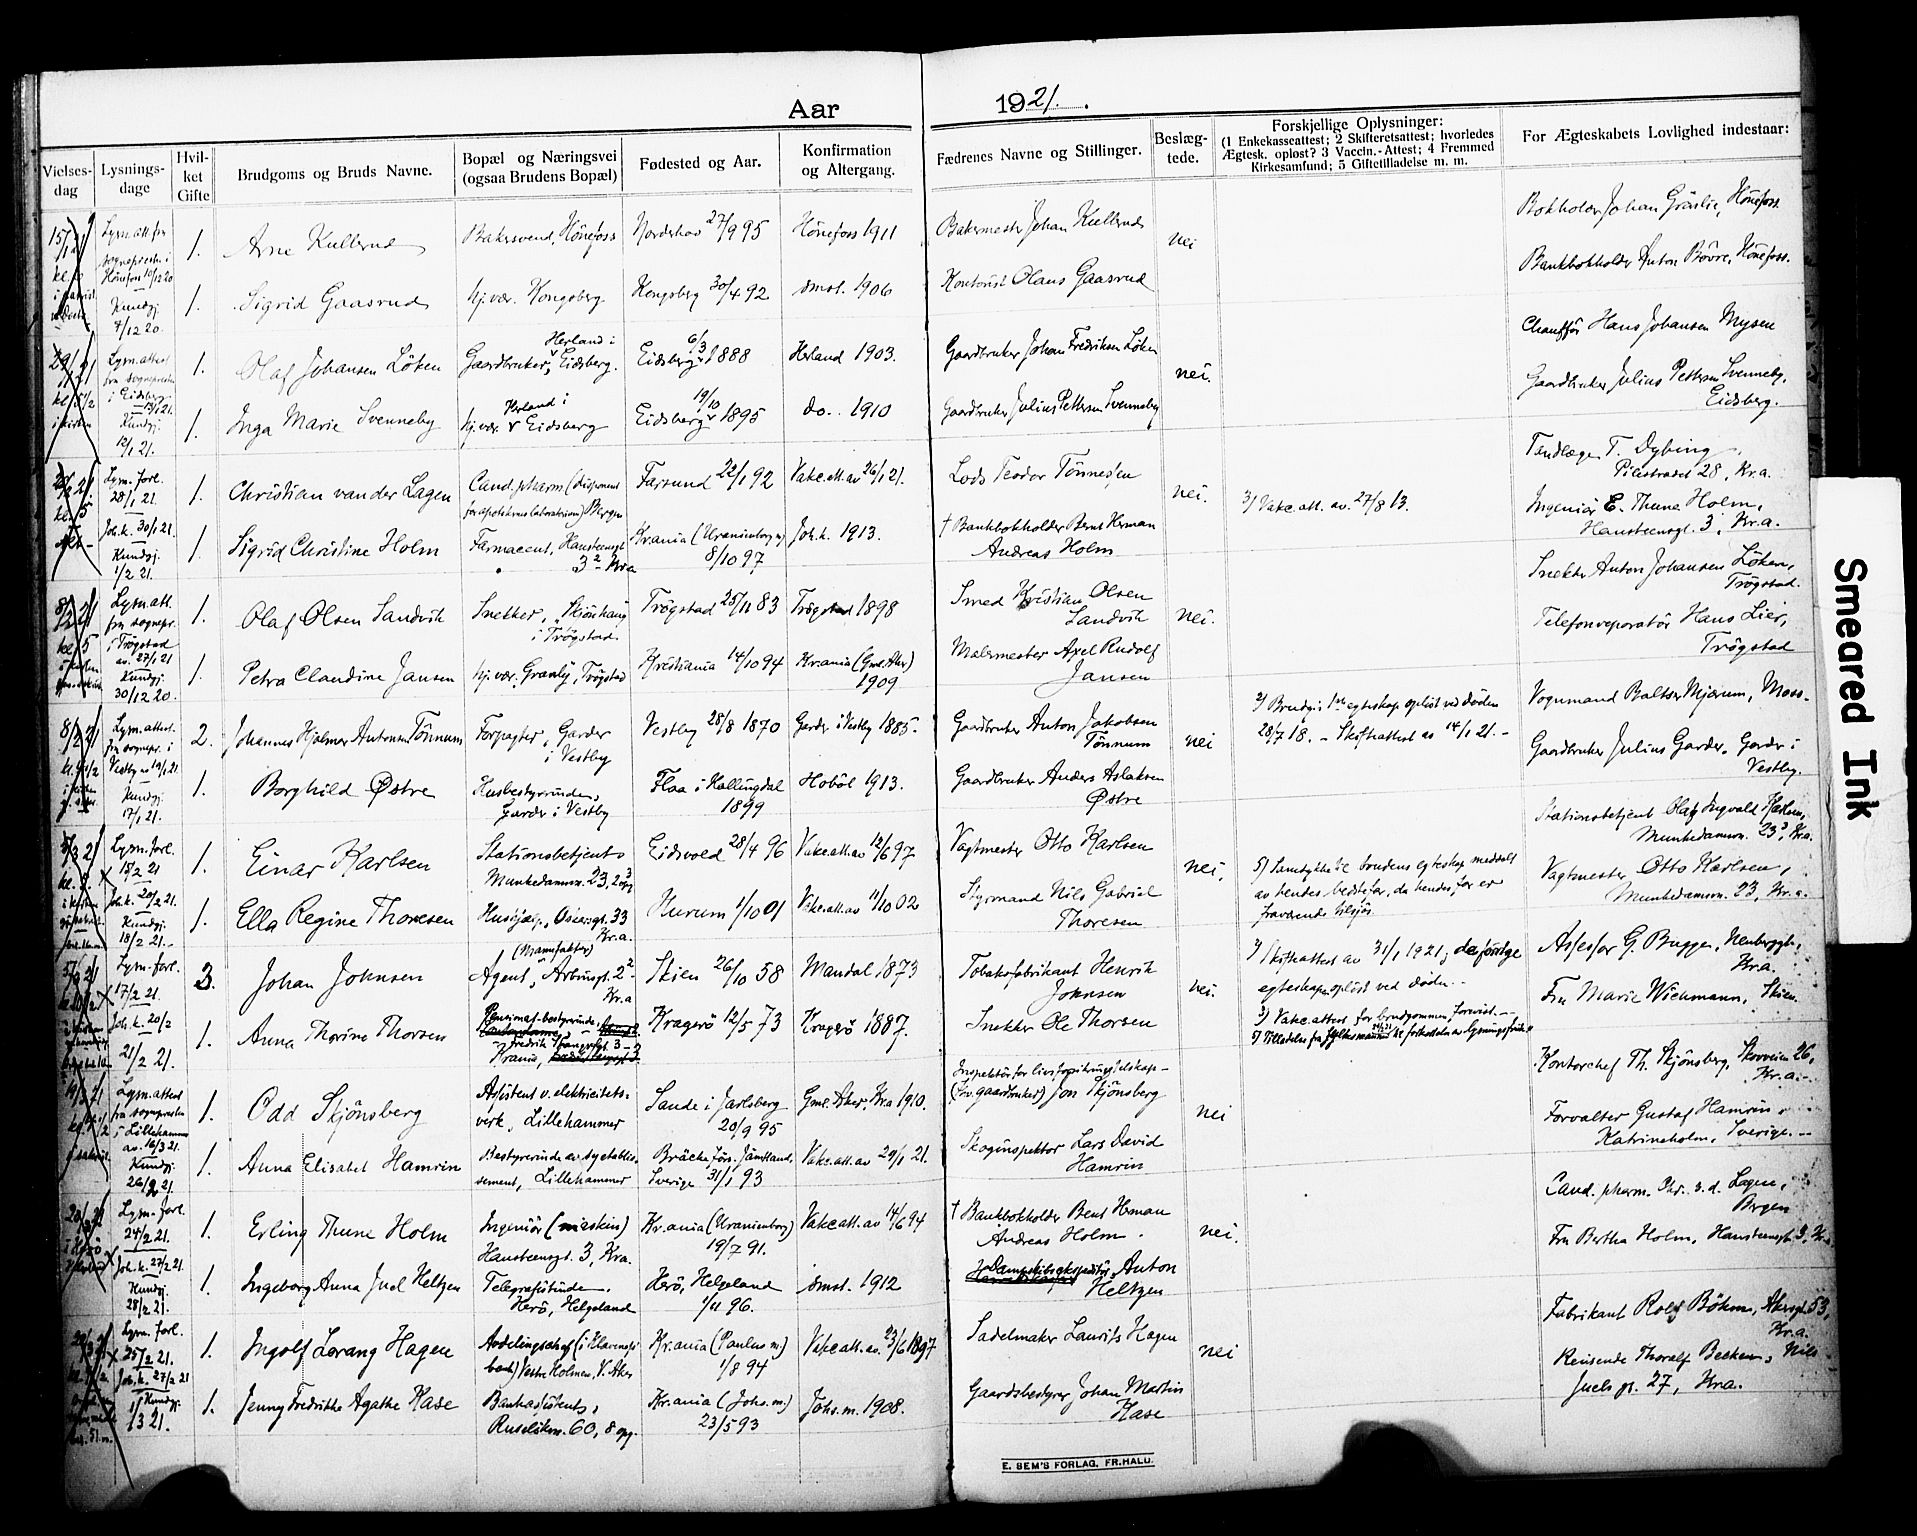 Aar 1921.
Vielses-dag
Lysnings-dage
Hvil-ket Gifte
Brudgoms og Bruds Navne.
Bopæl og Næringsvei (ogsaa Brudens Bopæl)
Fødested og Aar.
Konfirmation og Altergang.
Fædrenes Navne og Stillinger.
Beslæg-tede.
Forskjellige Oplysninger:
(1 Enkekasseattest; 2 Skifteretsattest; hvorledes
Ægtesk. opløst? 3 Vaccin.-Attest; 4 Fremmed
Kirkesamfund; 5 Giftetilladelse m. m.
For Ægteskabets Lovlighed indestaar:
Kundgj. 7/12 20.
1. Arne Kullerud
Bakersvend, Hönefoss
Norderhov 27/9 95
Hönefoss 1911
Bakermester Johan Kullerud
nei
Bokholder Johan Gräslie, Hönefoss.
1. Sigrid Gaasrud
hj.vær. Kongsberg
Kongsberg 30/4 92
smst. 1906
Kontorist Olaus Gaasrud
Bankbokholder Anton Bövre, Hönefoss.
1. Olaf Johansen Löken
Gaardbruker, Herland i Eidsberg.
Eidsberg 6/3 1888
Herland 1903.
Gaardbruker Johan Fredriksen Löken
nei.
Chauffør Hans Johansen Mysen
1. Inga Marie Svenneby
hj.vær. Herland i Eidsberg
Eidsberg 19/10 1895
do. 1910
Gaardbruker Julius Pettersen Svenneby
Gaardbruker Julius Pettersen Svenneby,
Eidsberg.
Lysn. forl. 28/1 21.
Joh.k. 30/1 21.
Kundgj. 1/2 21.
1. Christian van der Lagen
Cand. pharm (disponent
for apotekernes laboratorium) Bergen
Farsund 22/1 92
Vakc.att. av 26/1 21.
Lods Teodor Tönnesen
nei.
3) Vakc. att. av. 27/8 13.
Tandlæge T. Dybing,
Pilestrædet 28, Kr.a.
1. Sigrid Christine Holm
Farmaceut, Hansteensgt
3² Kr.a
Kr.ania (Uranienborg m)
8/10 97
Joh.k. 1913.
† Bankbokholder Bernt Herman
Andreas Holm
Ingeniör E. Thune Holm,
Hansteensgt. 3, Kr.a.
8/2 21
Lysn.att.
fra sognepr.
i Trögstad
av. 27/1 21
Kundgj.
30/12 20.
1. Olaf Olsen Sandvik
Snekker, "Skjönhaug
i Trögstad.
Trögstad 25/11 83
Trögstad 1898
Smed Kristian Olsen
Sandvik
nei.
Snekker Anton Johansen Löken,
Trögstad.
1. Petra Claudine Jansen
hj.vær. Granly, Trögstad
Kristiania 14/10 94
Kr.ania (Gml. Aker)
1909
Malermester Axel Rudolf
Jansen
Telefonreparatör Hans Lier,
Trögstad
8/2 21
Lysn.attest.
fra sognepr. i
Vestby av 19/1 21.
Kundgj.
17/1 21.
2. Johannes Hjalmar Antonsen Tönnum
Forpagter, Garder
i Vestby
Vestby 28/8 1870
Garder i Vestby 1885.
Gaardbruker Anton Jakobsen
Tönnum
nei
2) Brudg.s 1ste egteskap oplöst ved döden
28/7 18. – Skifteattest av 14/1 21. –
Vognmand Baltser Mjærum, Moss.
1. Borghild Østre
Husbestyrerinde,
Garder i Vestby
Flaa i Hallingdal
1899
Hoböl 1913.
Gaardbruker Anders Aslaksen
Østre
Gaardbruker Julius Garder, Garder i
Vestby.
5/3 21
Lysn.forl.
15/2 21
Joh.k. 20/2 21.
Kundgj.
18/2 21.
1. Einar Karlsen
Stationsbetjent,
Munkedamsvn. 23, 2 opg
Eidsvold 28/4 96
Vakc.att.av 12/6 97
Vagtmester Otto Karlsen
nei.
5) Samtykke til brudens egteskap meddelt
av hendes bedstefar, da hendes far er
fraværende tilsjös.
Stationsbetjent Olaf Ingvald Karlsen,
Munkedamsvn. 23³, Kr.a.
1. Ella Regine Thoresen
Hushjælp, Oscarsgt. 33
Kr.a.
Hurum 1/10 01
Vakc.att.av 11/10 02
Styrmand Nils Gabriel
Thoresen
Vagtmester Otto Karlsen,
Munkedamsvn. 23, Kr.a.
5/3 21
Lysn. forl.
17/2 21.
Joh.k. 20/2
21/2 21.
3. Johan Johnsen
(Manufaktur)
Agent, Arbinsgt. 2²
Kr.a
Skien 26/10 58
Mandal 1873
Tobaksfabrikant Henrik
Johnsen
nei.
2) Skifteattest av 31/1 1921; de forrige
egteskap oplöst ved döden. –
3) Vakc.attest for brudgommen, forevist. –
Assessor G. Bugge, Neuberggt.,
Kr.a.
1. Anna Thorine Thorsen
Pensionat-bestyrerinde,
Fredrik Stangsgt. 3
Kr.ania,
Kragerö 12/5 73
Kragerö 1887.
Snekker Ole Thorsen
Fru Marie Wichmann, Skien.
Lysn.attest
fra sognepresten
i Lillehammer
av. 16/3 21.
Kundgj.
26/2 21.
1. Odd Skjönsberg
Assistent v. elektricitets-
verk, Lillehammer
Sande i Jarlsberg
20/9 95
Gml. Aker, Kr.a 1910.
Inspektör for livsforsikringsselskap –
(förv. gaardbruker) Jon Skjönsberg
nei
Kontorchef Th. Skjönsberg, Skovveien 26,
Kr.a. –
1. Anna Elisabet Hamrin
Bestyrerinde av syetablis-
sement, Lillehammer
Bräcke förs. Jämtland,
Sverige 31/1 93
Vakc.att.av 29/1 21.
Skoginspektor Lars David
Hamrin
Forvalter Gustaf Hamrin,
Katrineholm, Sverige. –
Lysn. forl.
24/2 21.
Joh.k. 27/2 21
Kundgj.
28/2 21.
1. Erling Thune Holm
Ingeniör (maskin)
Hansteensgt. 3, Kr.a.
Kr.ania (Uranienborg)
19/7 91.
Vakc.att.av 14/6 94
† Bankbokholder Bernt Herman
Andreas Holm.
nei.
Cand. pharm. Chr. v.d. Lagen,
Bergen
1. Ingeborg Anna Juel Heltzen
Telegrafistinde.
Herö, Helgeland
Herö, Helgeland
1/11 96.
smst. 1912
Dampskibsekspeditör Anton
Heltzen
Fru Bertha Holm, Hansteensgt. 3, Kr.a.
Lysn. forl.
25/2 21.
Joh.k. 27/2 21
Kundgj.
1/3 21.
1. Ingolf Lorang Hagen
Avdelingschef
Vestre Holmen, V. Aker
Kr.ania (Paulus m.)
1/8 94
Vakc.att.av. 23/6 1897
Sadelmaker Laurits Hagen
nei
Fabrikant Rolf Böhm, Akersgt. 53,
Kr.a.
1. Jenny Fredrikke Agathe Hase
Bankassistent,
Ruselökvn. 60, 8 opg.
Kr.ania (Johs. m.)
23/5 93
Johs.m. 1908.
Gaardsbestyrer Johan Martin
Hase
Reisende Thoralf Becken, Nils
Juels gt. 27, Kr.a.
E. SEM'S FORLAG, FR.HALD.
Smeared Ink